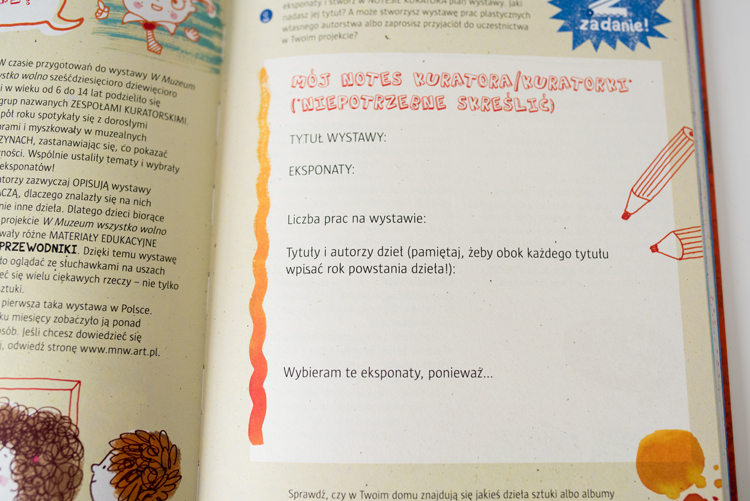 W czasie przygotowań do wystawy W Muzeum
wszystko wolno sześćdziesięcioro dziewięcioro
i w wieku od 6 do 14 lat podzieliło się
grup nazwanych ZESPOŁAMI KURATORSKIMI.
pół roku spotykały się z dorosłymi
i myszkowały w muzealnych
zastanawiając się, co pokazać
Wspólnie ustaliły tematy i wybrały
eksponatów!
zazwyczaj OPISUJĄ wystawy
dlaczego znalazły się na nich
nie inne dzieła. Dlatego dzieci biorące
projekcie W Muzeum wszystko wolno
różne MATERIAŁY EDUKACYJNE
PRZEWODNIKI. Dzięki temu wystawę
oglądać ze słuchawkami na uszach
się wielu ciekawych rzeczy – nie tylko
sztuki.
pierwsza taka wystawa w Polsce.
miesięcy zobaczyło ją ponad
osób. Jeśli chcesz dowiedzieć się
odwiedź stronę www.mnw.art.pl.
eksponaty i stwórz w NOTESIE KURATORA plan wystawy. Jaki
nadasz jej tytuł? A może stworzysz wystawę prac plastycznych
własnego autorstwa albo zaprosisz przyjaciół do uczestnictwa
w Twoim projekcie?
zadanie!
MÓJ NOTES KURATORA/KURATORKI*
(*NIEPOTRZEBNE SKREŚLIĆ)
TYTUŁ WYSTAWY:
EKSPONATY:
Liczba prac na wystawie:
Tytuły i autorzy dzieł (pamiętaj, żeby obok każdego tytułu
wpisać rok powstania dzieła!):
Wybieram te eksponaty, ponieważ...
Sprawdź, czy w Twoim domu znajdują się jakieś dzieła sztuki albo albumy